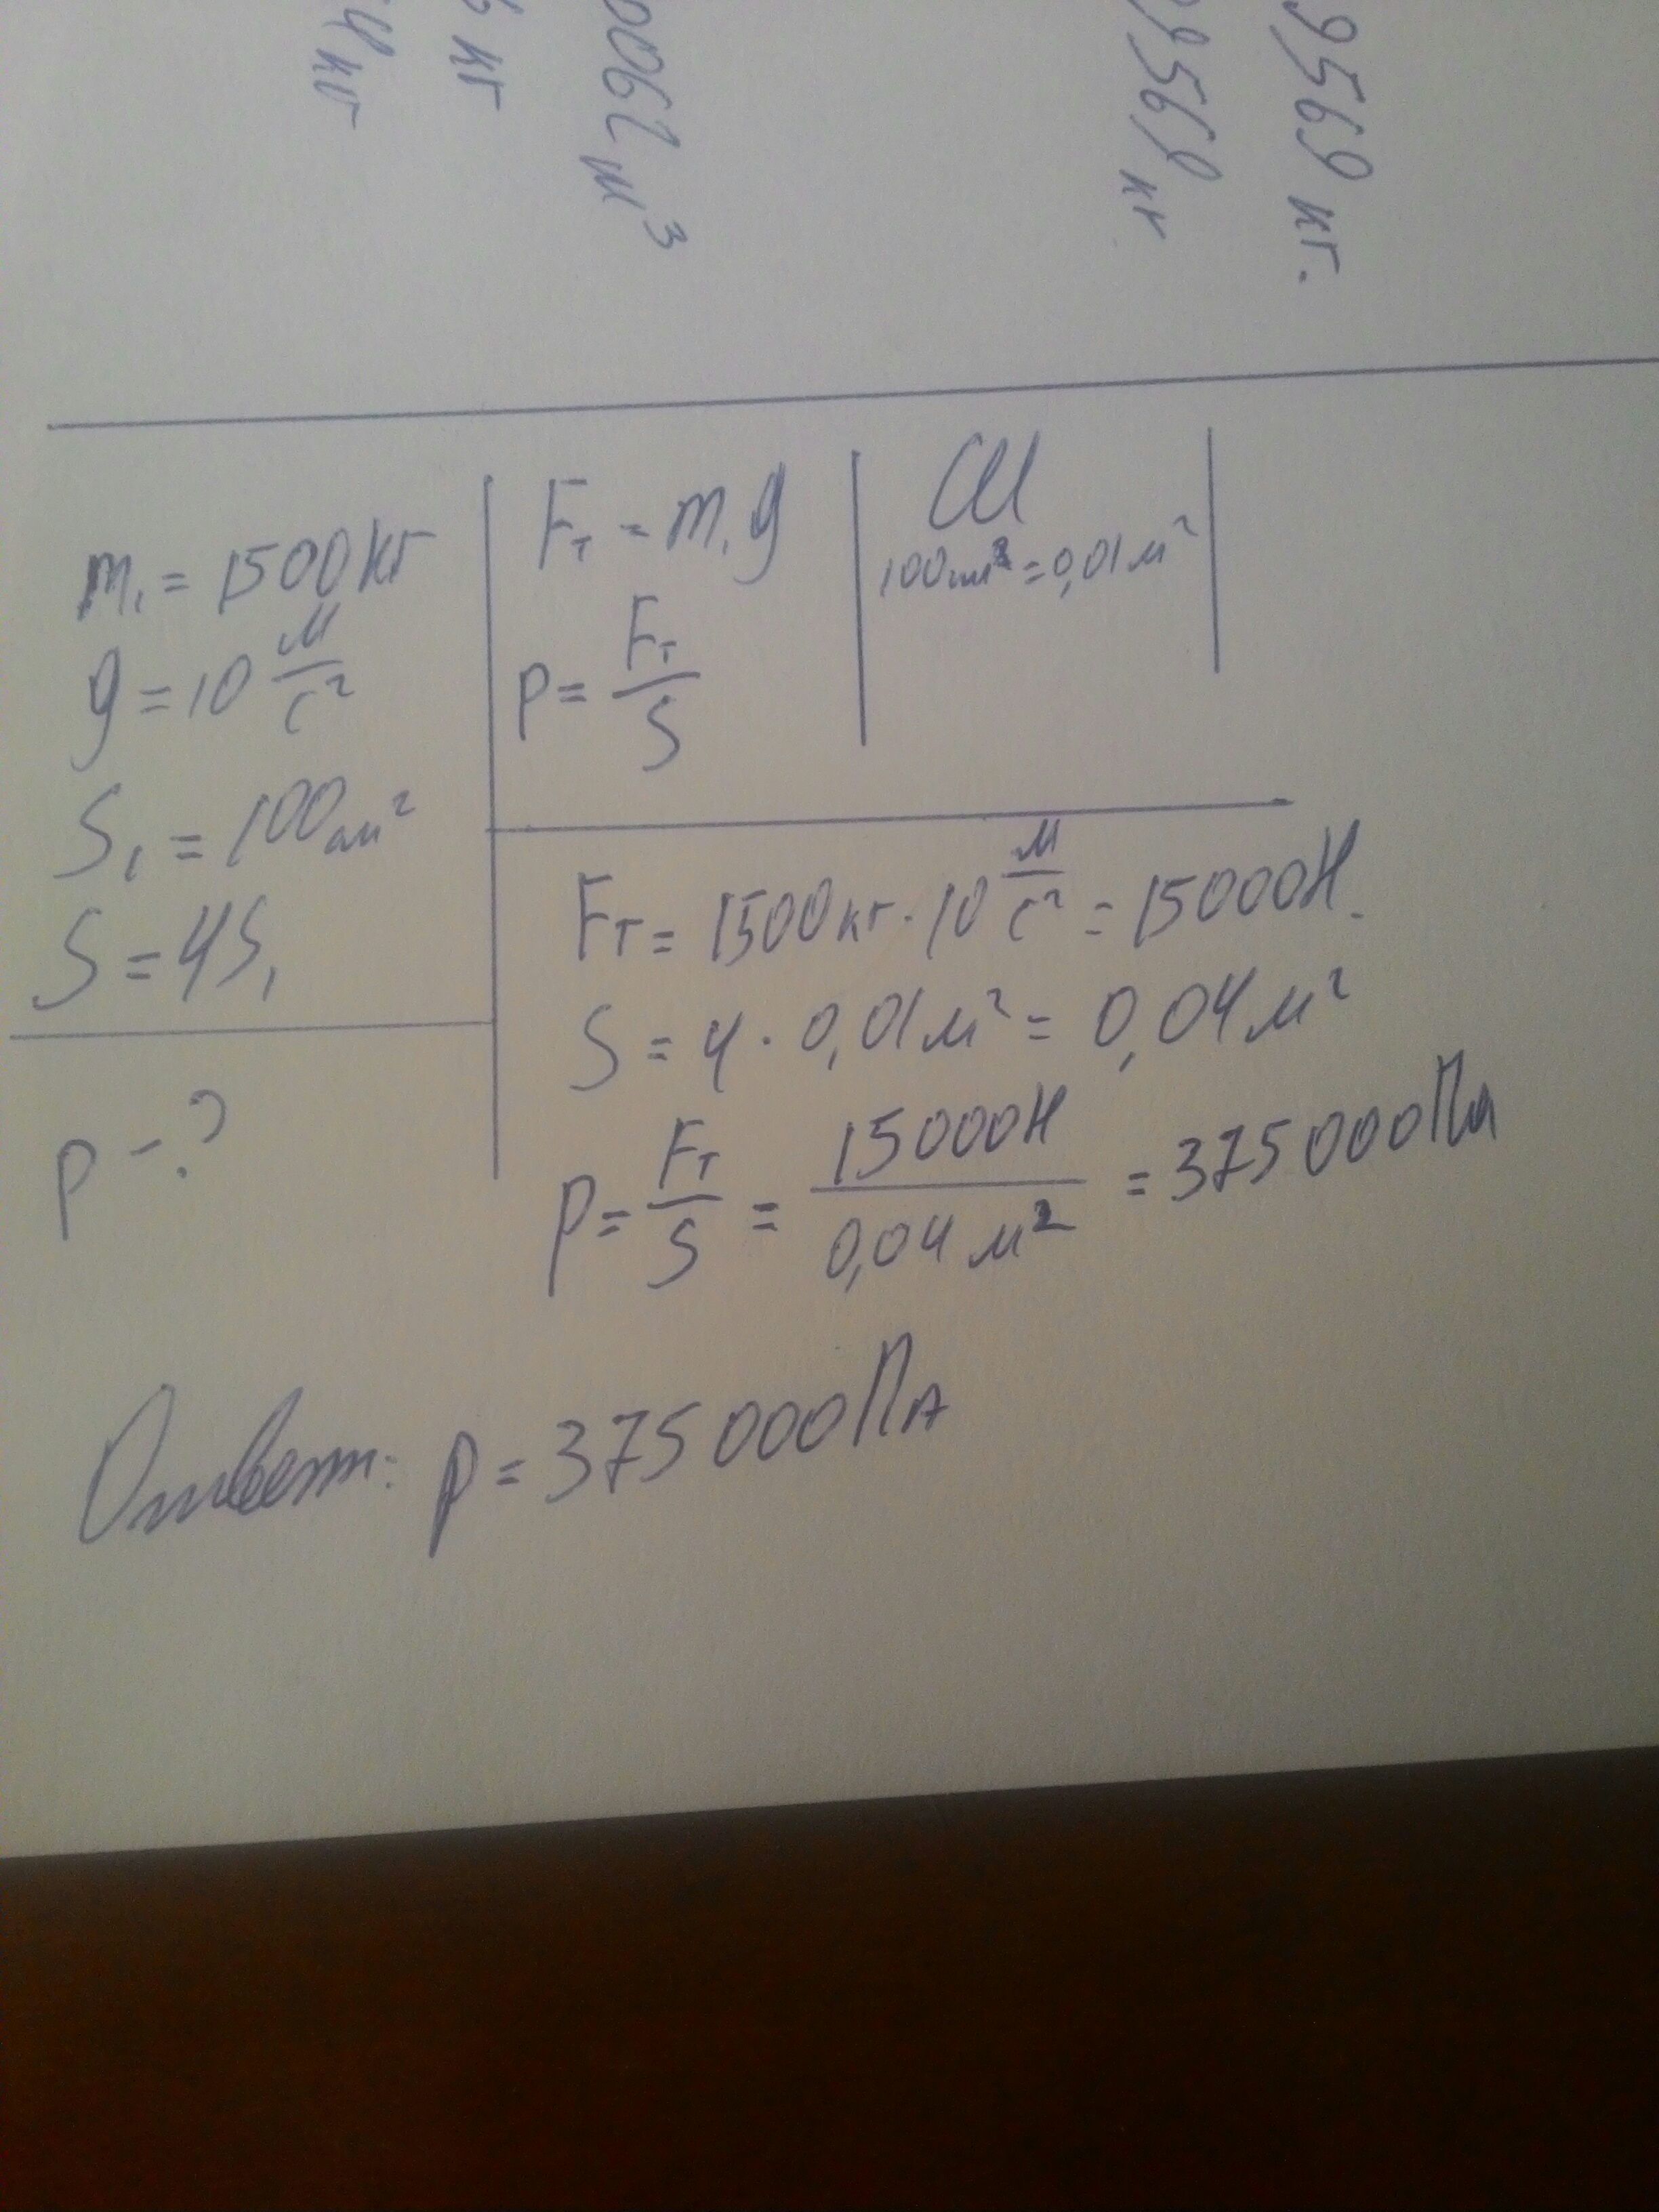 4 кг
кг
0062 м³
9569 кг
9569 кг.
m₁ = 1500 кг
g = 10 м/с²
S₁ = 100 см²
S = 4S₁
p - ?
Fт = m₁g
p = Fт/S
СИ
100 см² = 0,01 м²
Fт = 1500 кг · 10 м/с² = 15000 Н.
S = 4 · 0,01 м² = 0,04 м²
p = Fт/S = 15000Н/0,04 м² = 375 000 Па
Ответ: p = 375 000 Па